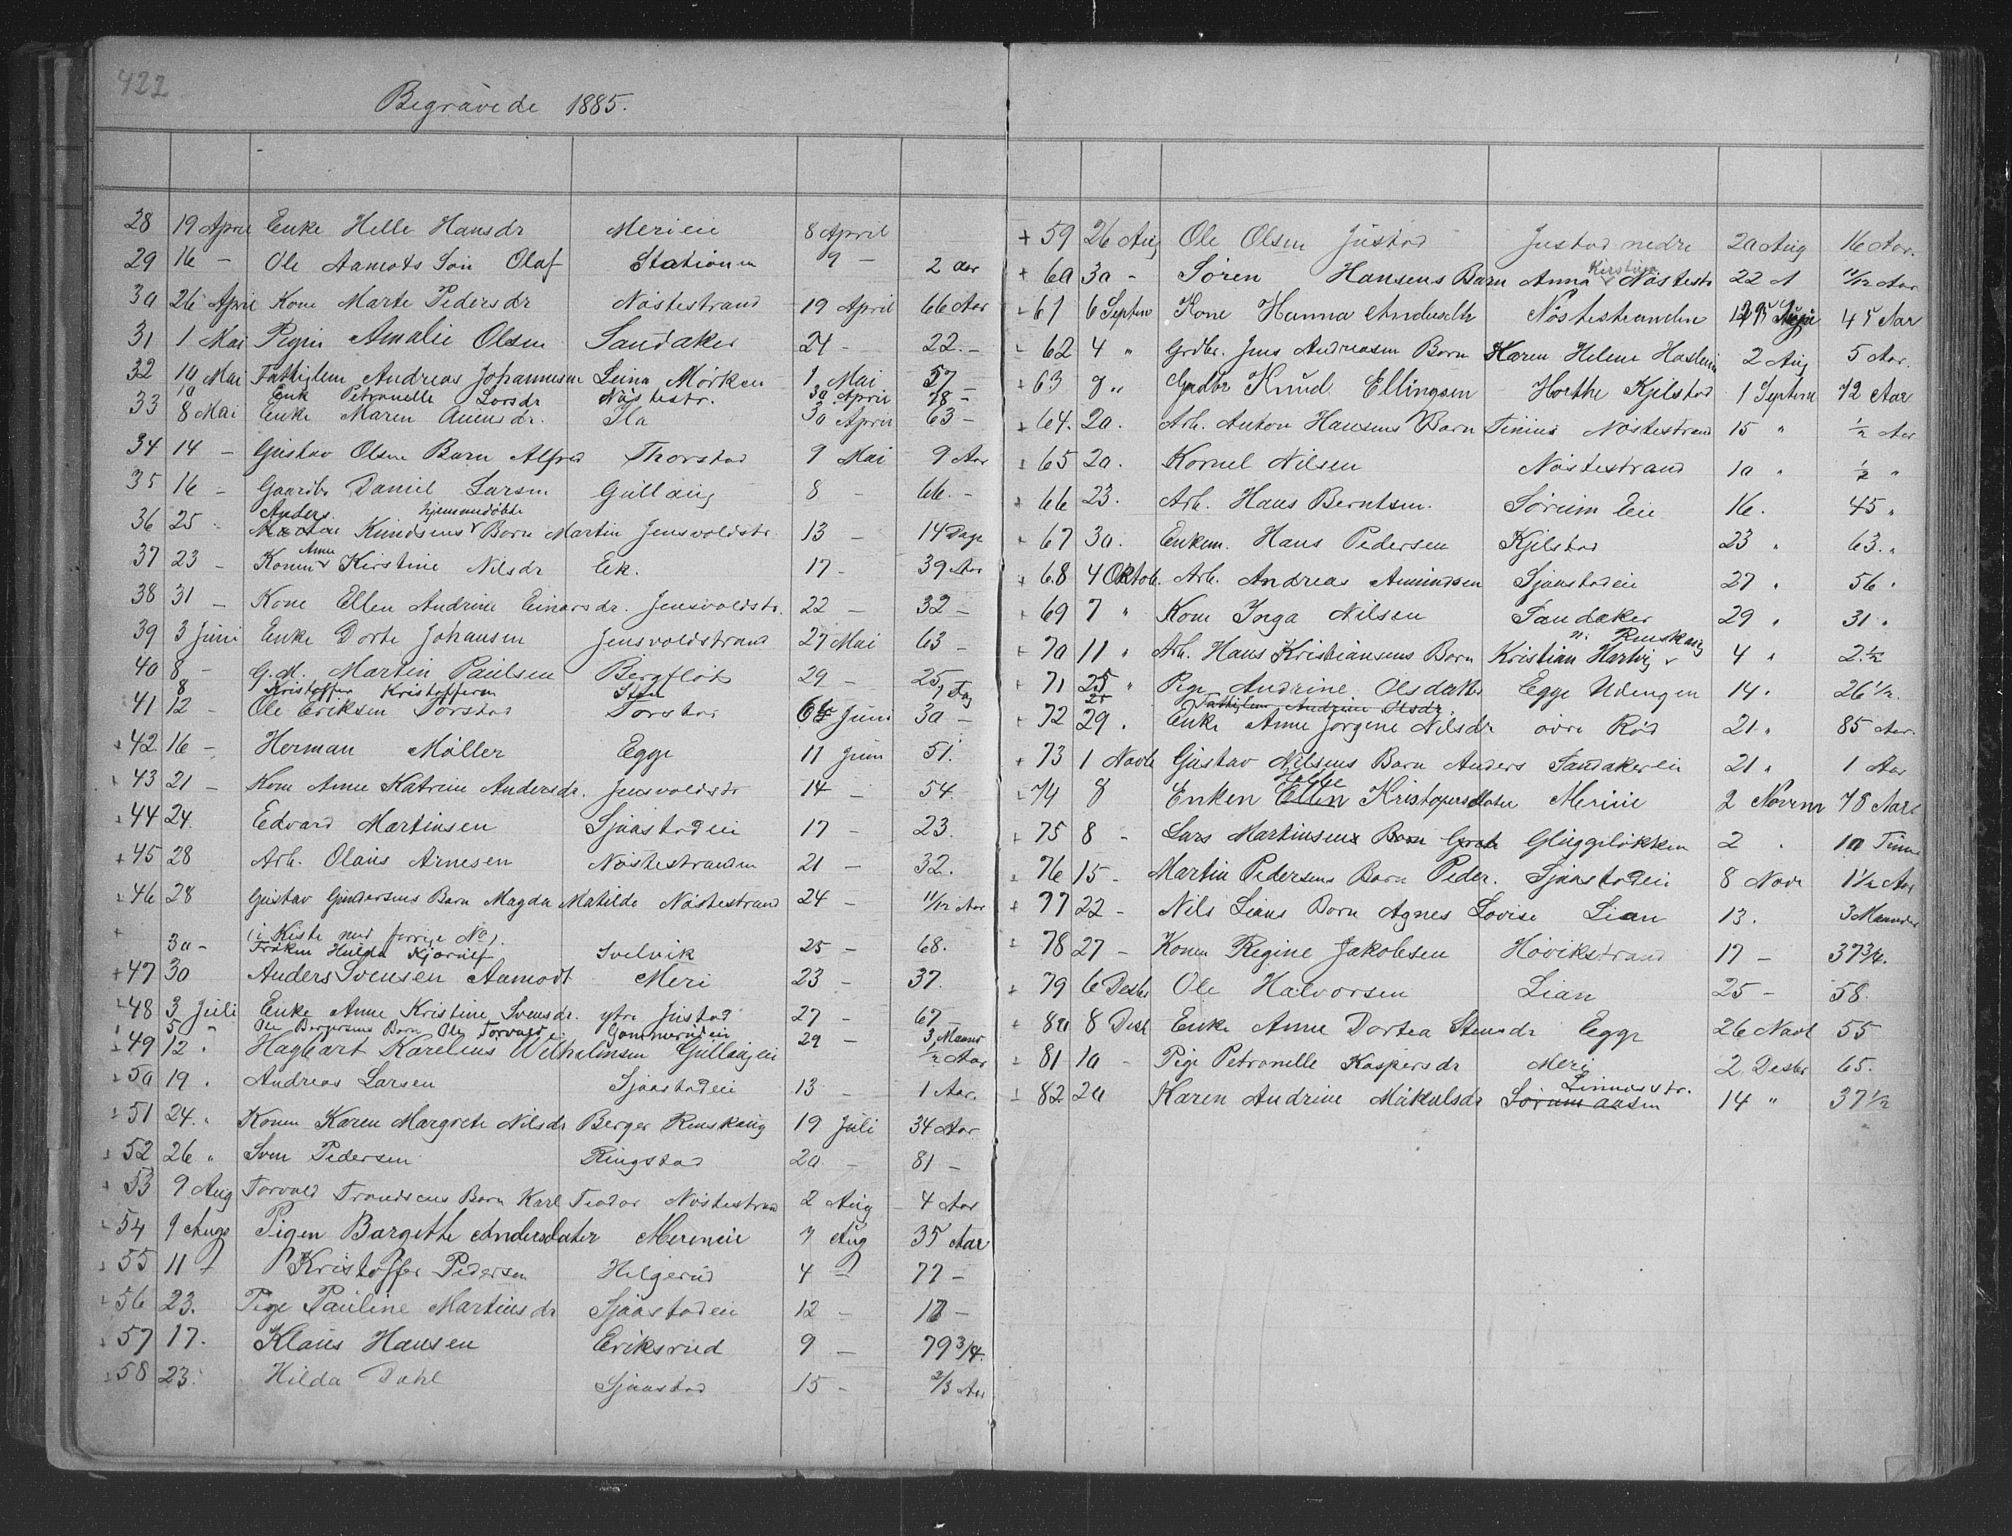 422
Begravede 1885.
28 19 April Enke Helle Hansdr Merieie 8 April
29 16 — Ole Aamots Søn Olaf Stationen 9 — 2 aar
30 26 April Kone Marte Pedersdr Nøstestrand 19 April 66 Aar
31 1 Mai Pigen Amalie Olsen Sandaker 24 — 22. —
32 10 Mai Fattiglem Andreas Johannesen Leina Mørken 1 Mai 57 —
10 Enk Petronelle Larsdr Nøstestr. 30 April 78 —
33 8 Mai Enke Maren Amundsdr. Ila 30 April 63 —
34 14 — Gustav Olsen Barn Alfred Thorstad 9 Mai 9 Aar
35 16 — Gaardbr Daniel Larsen Gullaug 8 — 66. —
Anders hjemmedøbte
36 25 Knudsens Barn Martin Jensvoldstr. 13 — 14 Dage
37 23 — Konen Anne Kirstine Nilsdr Ek. 17 — 39 Aar
38 31 — Kone Ellen Andrine Einarsdr. Jensvoldstr. 22 — 32 —
39 3 Juni Enke Dorte Johansen Jensvoldstrand 27 Mai 63 —
40 8 — G.M. Martin Paulsen Bergflødt 29 — 25
8 Kristoffer Kristoffersen Stea 7 Dag
41 12 — Ole Eriksen Torstad Torstad 6 Juni 30 —
+ 42 16 — Herman Møller Egge 11 Juni 51.
+ 43 21 — Kone Anne Katrine Andersdr. Jensvoldstr 14 — 54.
+ 44 24. Edvard Martinsen Sjaastadeie 17 — 23.
+ 45 28 Arb. Olaus Arnesen Nøstestranden 21 — 32.
+ 46 28 Gustav Gundersens Barn Magda Matilde Nøstestrand 24 — 11/12 Aar
+ (i Kiste med forrige No).
30 — Frøken Hulda Kjerulf Svelvik 25 — 68.
+ 47 30 Anders Svensen Aamodt Meri 23 — 37.
+ 48 3 Juli Enke Anne Kristine Svensdr. ytre Justad 27 — 67 —
5 " Ole Borgersens Barn Ole Torvald Gommerudeie 3 Maaned
+ 49 12 " Hagbart Karelius Wilhelmsen Gullaugeie 29 — 1/2 Aar
+ 50 19 " Andreas Larsen Sjaastadeie 13 — 1 Aar.
+ 51 24. " Konen Karen Margrete Nilsdr Berger Renskaug 19 Juli 34 Aar
+ 52 26 " Sven Pedersen Ringstad 20 — 81 —
+ 53 9 Aug Torvald Trondsens Barn Karl Teodor Nøstestrand 2 Aug 4 Aar
+ 54 9 Augs Pigen Bargithe Andersdater Merieneie 7 Aug 35 Aar
+ 55 11 Kristoffer Pedersen Hilgerud 4 — 77 —
+ 56 23. Pige Pauline Martinsdr Sjaastadeie 12 — 12 —
+ 57 17. Klaus Hansen Eriksrud 9 — 79 3/4.
+ 58 23. Hilda Dahl Sjaastad 15 — 2/3 Aar
+ 59 26 Aug Ole Olsen Justad Justad nedre 20 Aug 16 Aar.
+ 60 30 — Søren Hansens Barn Anna Kirstine Nøstestr 22 A 10/12 Aar
+ 61 6 Septem Kone Hanna Andersdtr Nøstestranden 45 Aar
+ 62 4 " Grdbr. Jens Andreasen Barn Karen Helene Haslum 2 Aug 5 Aar.
+ 63 9 " Grdbr Knud Ellingsen Horthe Kjelstad 1 Septem 72 Aar
+ 64. 20. Arb. Anton Hansens Barn Tinius Nøstestrand 15 " 1/2 Aar
+ 65 20. Kornel Nilsen Nøstestrand 10 " 1/2 "
+ 66 23. Arb. Hans Berntsen. Sørum Eie 16. 45 "
+ 67 30. Enkem. Hans Pedersen Kjelstad 23 " 63. "
+ 68 4 Oktob. Arb. Andreas Amundsen Sjaastadeie 27 " 56 "
+ 69 7 " Kone Inga Nilsen Sandaker 29 " 31 "
+ 70 11 " Arb. Hans Kristiansens Barn Kristian Hartvig Renskaug 4 " 2 1/2
+ 71 25 " Pige Andrine Olsdatter Egge Udengen 14. 26 1/2.
25 Fattiglem Andrine Olsdr.
+ 72 29 " Enke Anne Jørgene Nilsdr øvre Rød 21 " 85 Aar.
+ 73 1 Novb Gustav Nilsens Barn Anders Sandakereie 21 " 1 Aar
+ 74 8 Enken Ellen Kristopersdater Merieie 2 Novem 78 Aar
+ 75 8 — Lars Martinsens Barn Gluggeløkken 2 " 10 Time
+ 76 15 — Martin Pedersens Barn Peder. Sjaastadeie 8 Novr 1 1/2 Aar
+ 77 22 — Nils Lians Barn Agnes Lovise Lian 13. 3 Maaneder
+ 78 27 — Konen Regine Jakobsen Høvikstrand 17 — 37 3/4.
+ 79 6 Desbr Ole Halvorsen Lian 25 — 58.
+ 80 8 Desb Enke Anne Dortea Stensdr Egge 26 Novb 55
+ 81 10 — Pige Petronelle Kaspersdr Meri 2 Desbr 65.
+ 82 20 Karen Andrine Mikalsdr Sørumaasen Linnesstr. 14 " 37 1/2